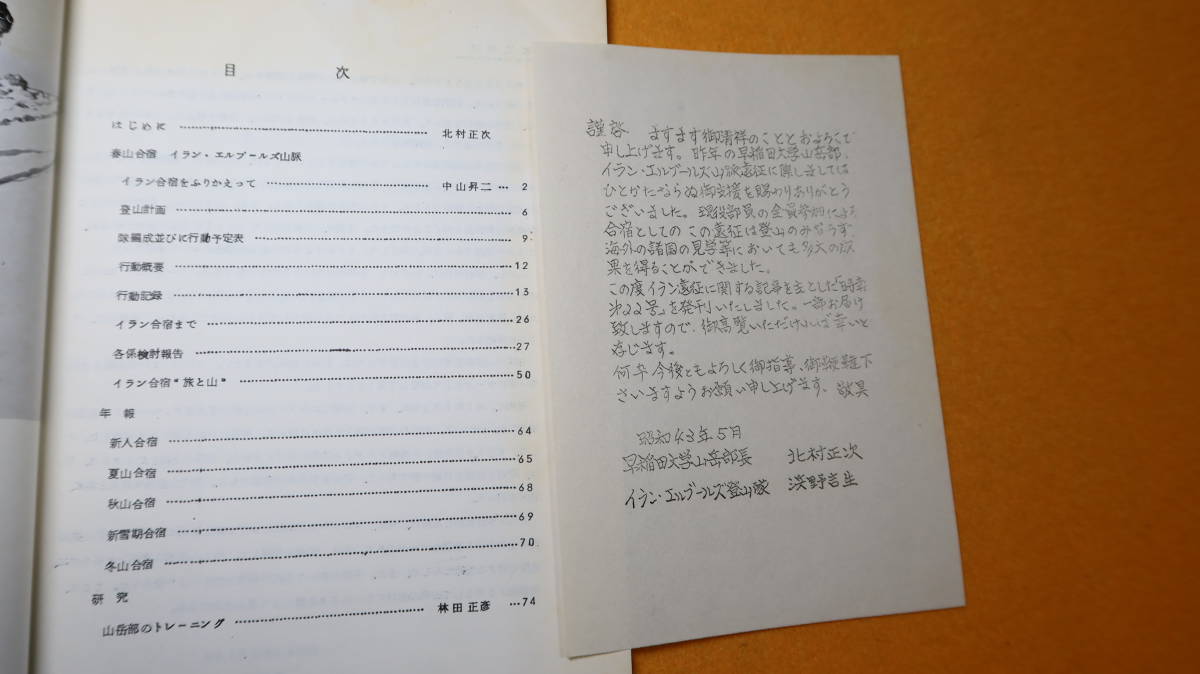 目 次
はじめに 北村正次
春山合宿 イラン・エルブールズ山脈
イラン合宿をふりかえって 中山昇二 … 2
登山計画 6
隊編成並びに行動予定表 9
行動概要 12
行動記録 13
イラン合宿まで 26
各係検討報告 27
イラン合宿“旅と山” 50
年 報
新人合宿 64
夏山合宿 65
秋山合宿 68
新雪期合宿 69
冬山合宿 70
研 究
山岳部のトレーニング 林田正彦 …74
謹啓 ますます御清祥のこととおよろこび
申し上げます。昨年の早稲田大学山岳部、
イラン・エルブールズ山脈遠征に際しましては
ひとかたならぬ御支援を賜わりありがとう
ございました。現役部員の全員参加による
合宿としてのこの遠征は登山のみならず
海外の諸国の見学等においても多大の成
果を得ることができました。
この度イラン遠征に関する記事を主とした「
第22号」を発刊いたしました。一部お届け
致しますので、御高覧いただければ幸いと
存じます。
何卒今後ともよろしく御指導、御鞭撻下
さいますようお願い申し上げます。 敬具
昭和43年5月
早稲田大学山岳部長 北村正次
イラン・エルブールズ登山隊 浅野吉生